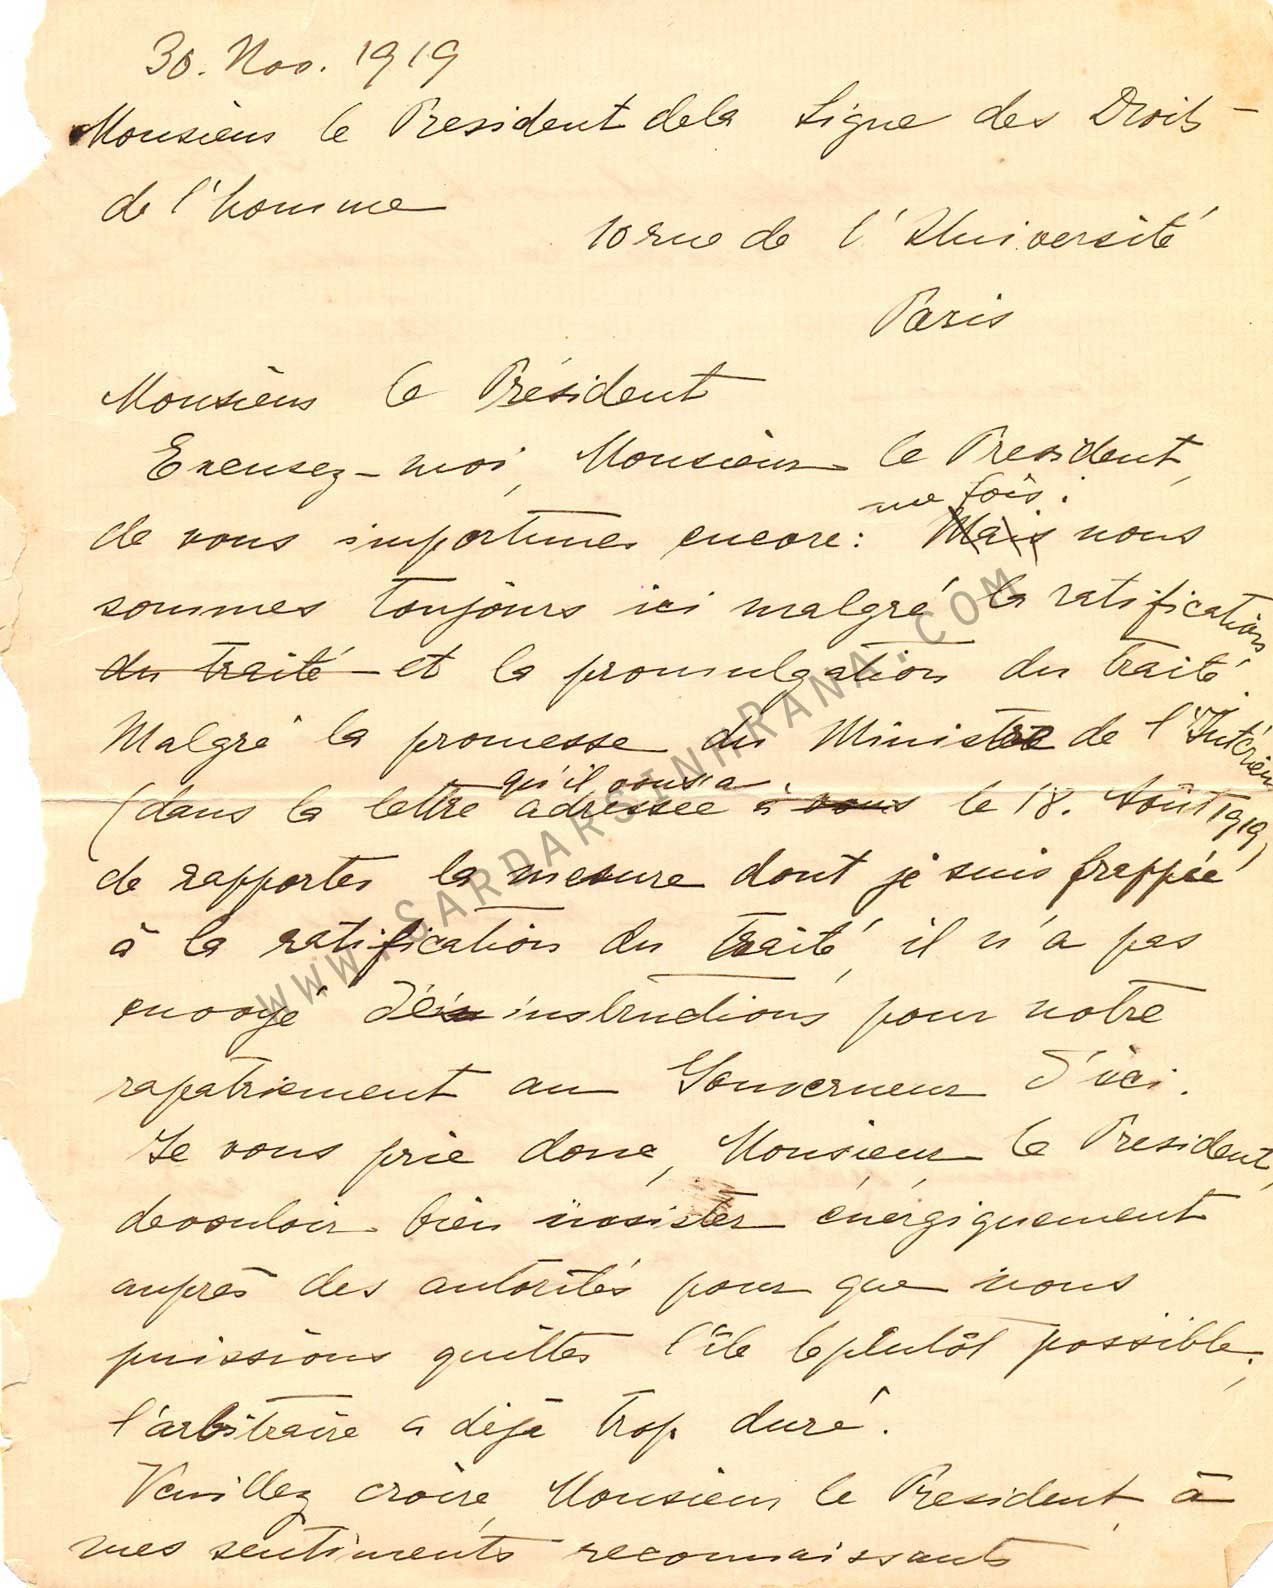 30. Nov. 1919
Monsieur le President de la Ligue des Droits
de l'homme
10 rue de l'Université
Paris
Monsieur le Président
Excusez-moi, Monsieur le President,
de vous importuner encore: une fois. Mais nous
sommes toujours ici malgré la ratification
du traité et la promulgation du traité.
Malgré la promesse du Ministre de l'Intérieur
(dans la lettre qu'il vous a adressée à vous le 18. Août 1919)
de rapporter la mesure dont je suis frappée
à la ratification du traité, il n'a pas
envoyé d'instructions pour notre
rapatriement au Gouverneur d'ici.
Je vous prie donc, Monsieur le President,
de vouloir bien insister énergiquement
auprès des autorités pour que nous
puissions quitter l'île le plutôt possible;
l'arbitraire a déjà trop duré.
Veuillez croire, Monsieur le President, à
mes sentiments reconnaissants
WWW.SARDARSINHRANA.COM